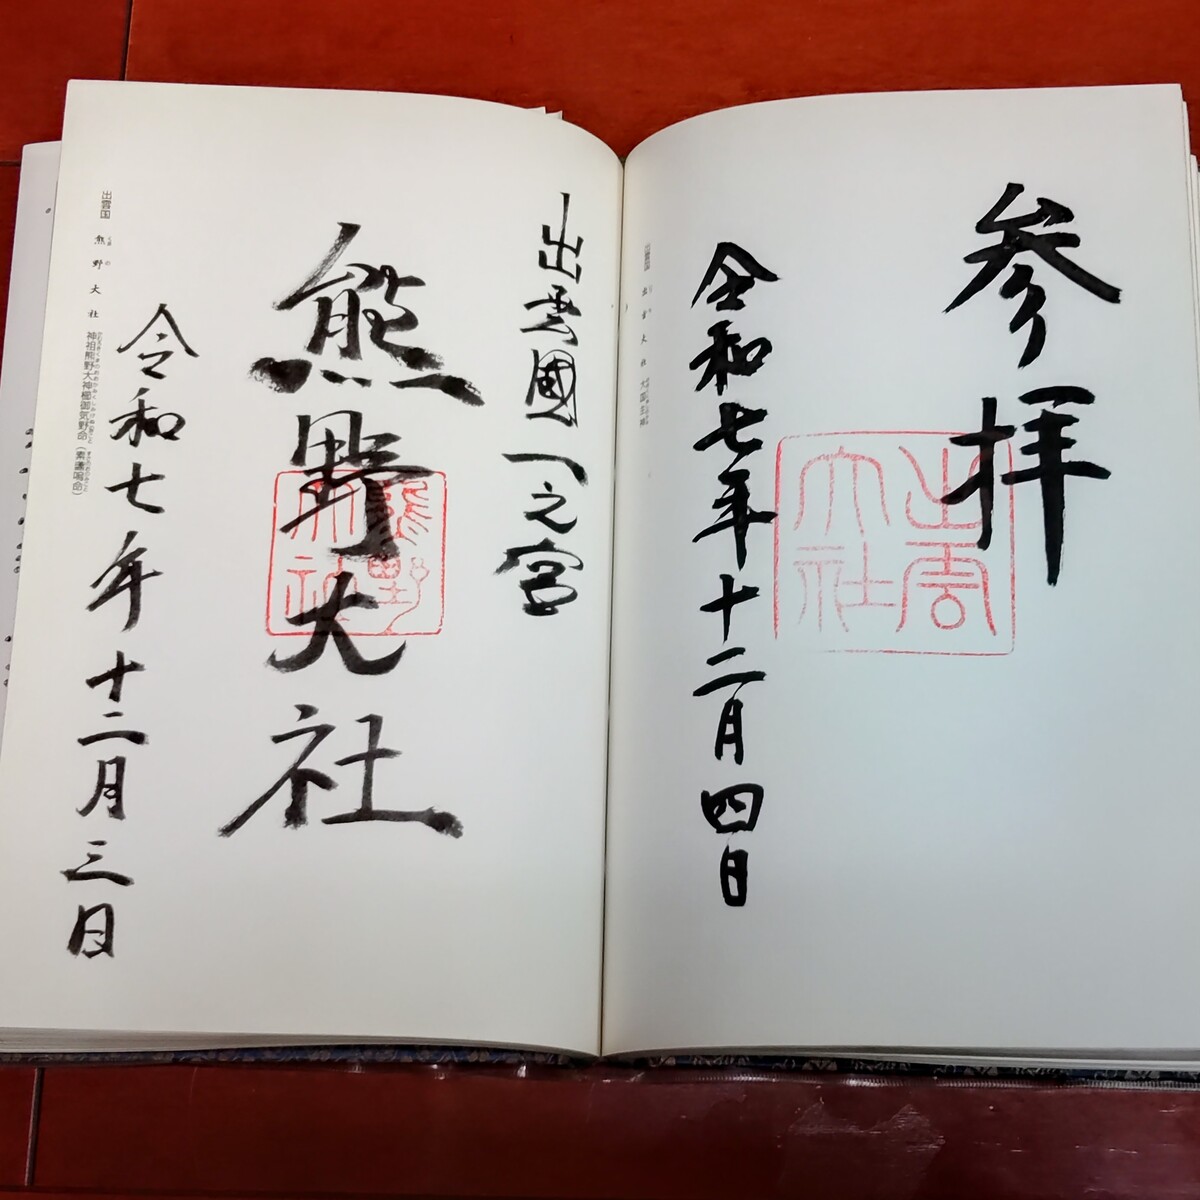 参拝
出雲大社
令和七年十二月四日
出雲国 出雲大社
出雲國一之宮
熊野大社
熊野大社
令和七年十二月三日
出雲国 熊野大社 神祖熊野大神櫛御気野命（素戔嗚命）